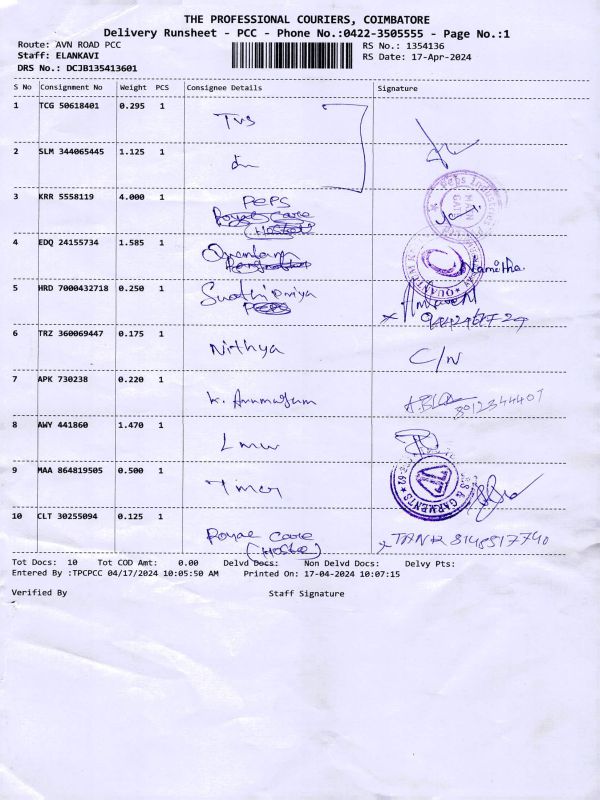 THE PROFESSIONAL COURIERS, COIMBATORE
Delivery Runsheet - PCC - Phone No.:0422-3505555 - Page No.:1
Route: AVN ROAD PCC
Staff: ELANKAVI
DRS No.: DCJB135413601
RS No.: 1354136
RS Date: 17-Apr-2024
S No Consignment No Weight PCS Consignee Details Signature
1 TCG 50618401 0.295 1
TVS
2 SLM 344065445 1.125 1
3 KRR 5558119 4.000 1
PEPS
Royal Care
(Hostel)
4 EDQ 24155734 1.585 1
Namitha
5 HRD 7000432718 0.250 1
PEPS
6 TRZ 360069447 0.175 1
Nithya C/N
7 APK 730238 0.220 1
K. Arumugam 8012344407
8 AWY 441860 1.470 1
Lmw
9 MAA 864819505 0.500 1
& GARMENTS
10 CLT 30255094 0.125 1
Royal Care
(Hostel)
Tot Docs: 10 Tot COD Amt: 0.00 Delvd Docs: Non Delvd Docs: Delvy Pts:
Entered By :TPCPCC 04/17/2024 10:05:50 AM Printed On: 17-04-2024 10:07:15
Verified By Staff Signature